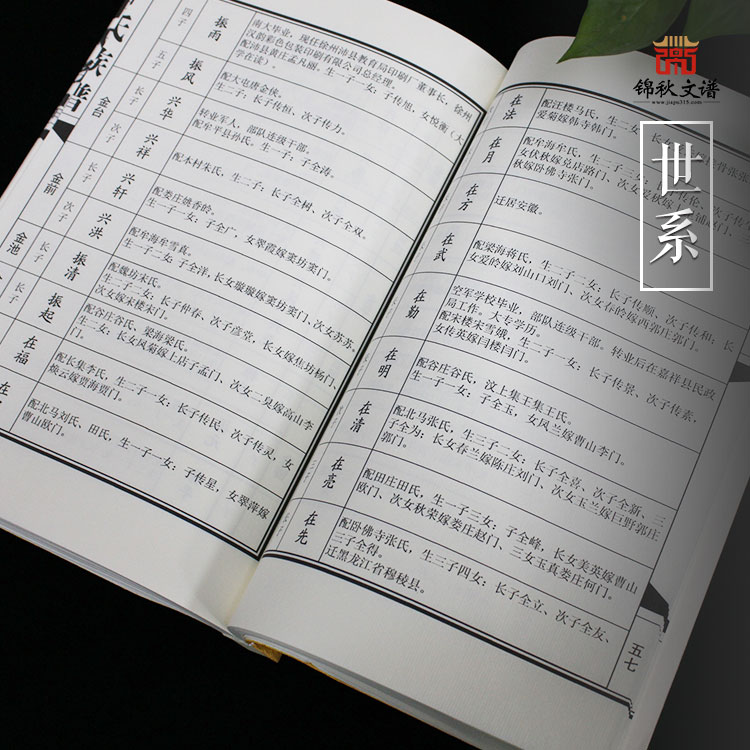 锦秋文谱
www.jiapu315.com
世系
氏族谱
四子
振雨
南大毕业，现任徐州沛县教育局印刷厂董事长，徐州
汉韵彩色包装印刷有限公司总经理。
配沛县黄庄孟凡丽。生一子一女：子传旭，女悦衡（大
学在读）。
五子
振风
配大屯唐金侠。
生二子：长子传恒、次子传力。
金台
长子
兴华
转业军人，部队连级干部。
配牟平县孙氏。生一子：子全涛。
次子
兴祥
配本村朱氏，生二子：长子全树、次子全双。
金前
长子
兴轩
配娄庄姚香龄。
生一子一女：子全广，女翠霞嫁窦坊窦门。
次子
兴洪
配牟海牟雪真。
生一子二女：子全洋，长女璇璇嫁窦坊窦门、次女苏苏。
金池
长子
振清
配魏坊宋氏。
生二子二女：长子仲春、次子彦堂，长女嫁焦坊杨门、
次女嫁宋楼宋门。
次子
振起
配谷庄谷氏，梁海梁氏。
生二女：长女风菊嫁上店子孟门、次女二臭嫁高山李
门。
长子
在福
配长集李氏，生二子一女：长子传民、次子传灵，女
焕云嫁贾海贾门。
配北马刘氏、田氏，生一子一女：子传星，女翠萍嫁
曹山欧门。
在法
配汪楼马氏，生二女：长
爱菊嫁韩寺韩门。
在月
配牟海牟氏，生二子三女：长子传伦、次子传
女秋秋嫁兑店路门、次女爱秋嫁
秋嫁卧佛寺张门。
在方
迁居安徽。
在武
配梁海蒋氏，生二子二女：长子传顺、次子传和；长
女爱的嫁刘山口刘门、次女春的嫁西郭庄郭门。
在勤
空军学校毕业，部队连级干部。转业后在嘉祥县民政
局工作。大专学历。
配宋楼宋雪娥，生二子一女：长子传景、次子传素，
女传英嫁闫楼闫门。
在明
配谷庄谷氏，汶上集王集王氏。
生一子一女：子全玉，女风兰嫁曹山李门。
在清
配北马张氏，生三子二女：长子全喜、次子全新、三
子全为；长女春兰嫁陈庄刘门、次女玉兰嫁巨野郭庄
郭门。
在亮
配田庄田氏，生一子三女：子全峰，长女美英嫁曹山
欧门、次女秋荣嫁娄庄赵门、三女玉真娄庄何门。
在先
配卧佛寺张氏，生三子四女：长子全立、次子全友、
三子全得。
迁黑龙江省穆棱县。
五七